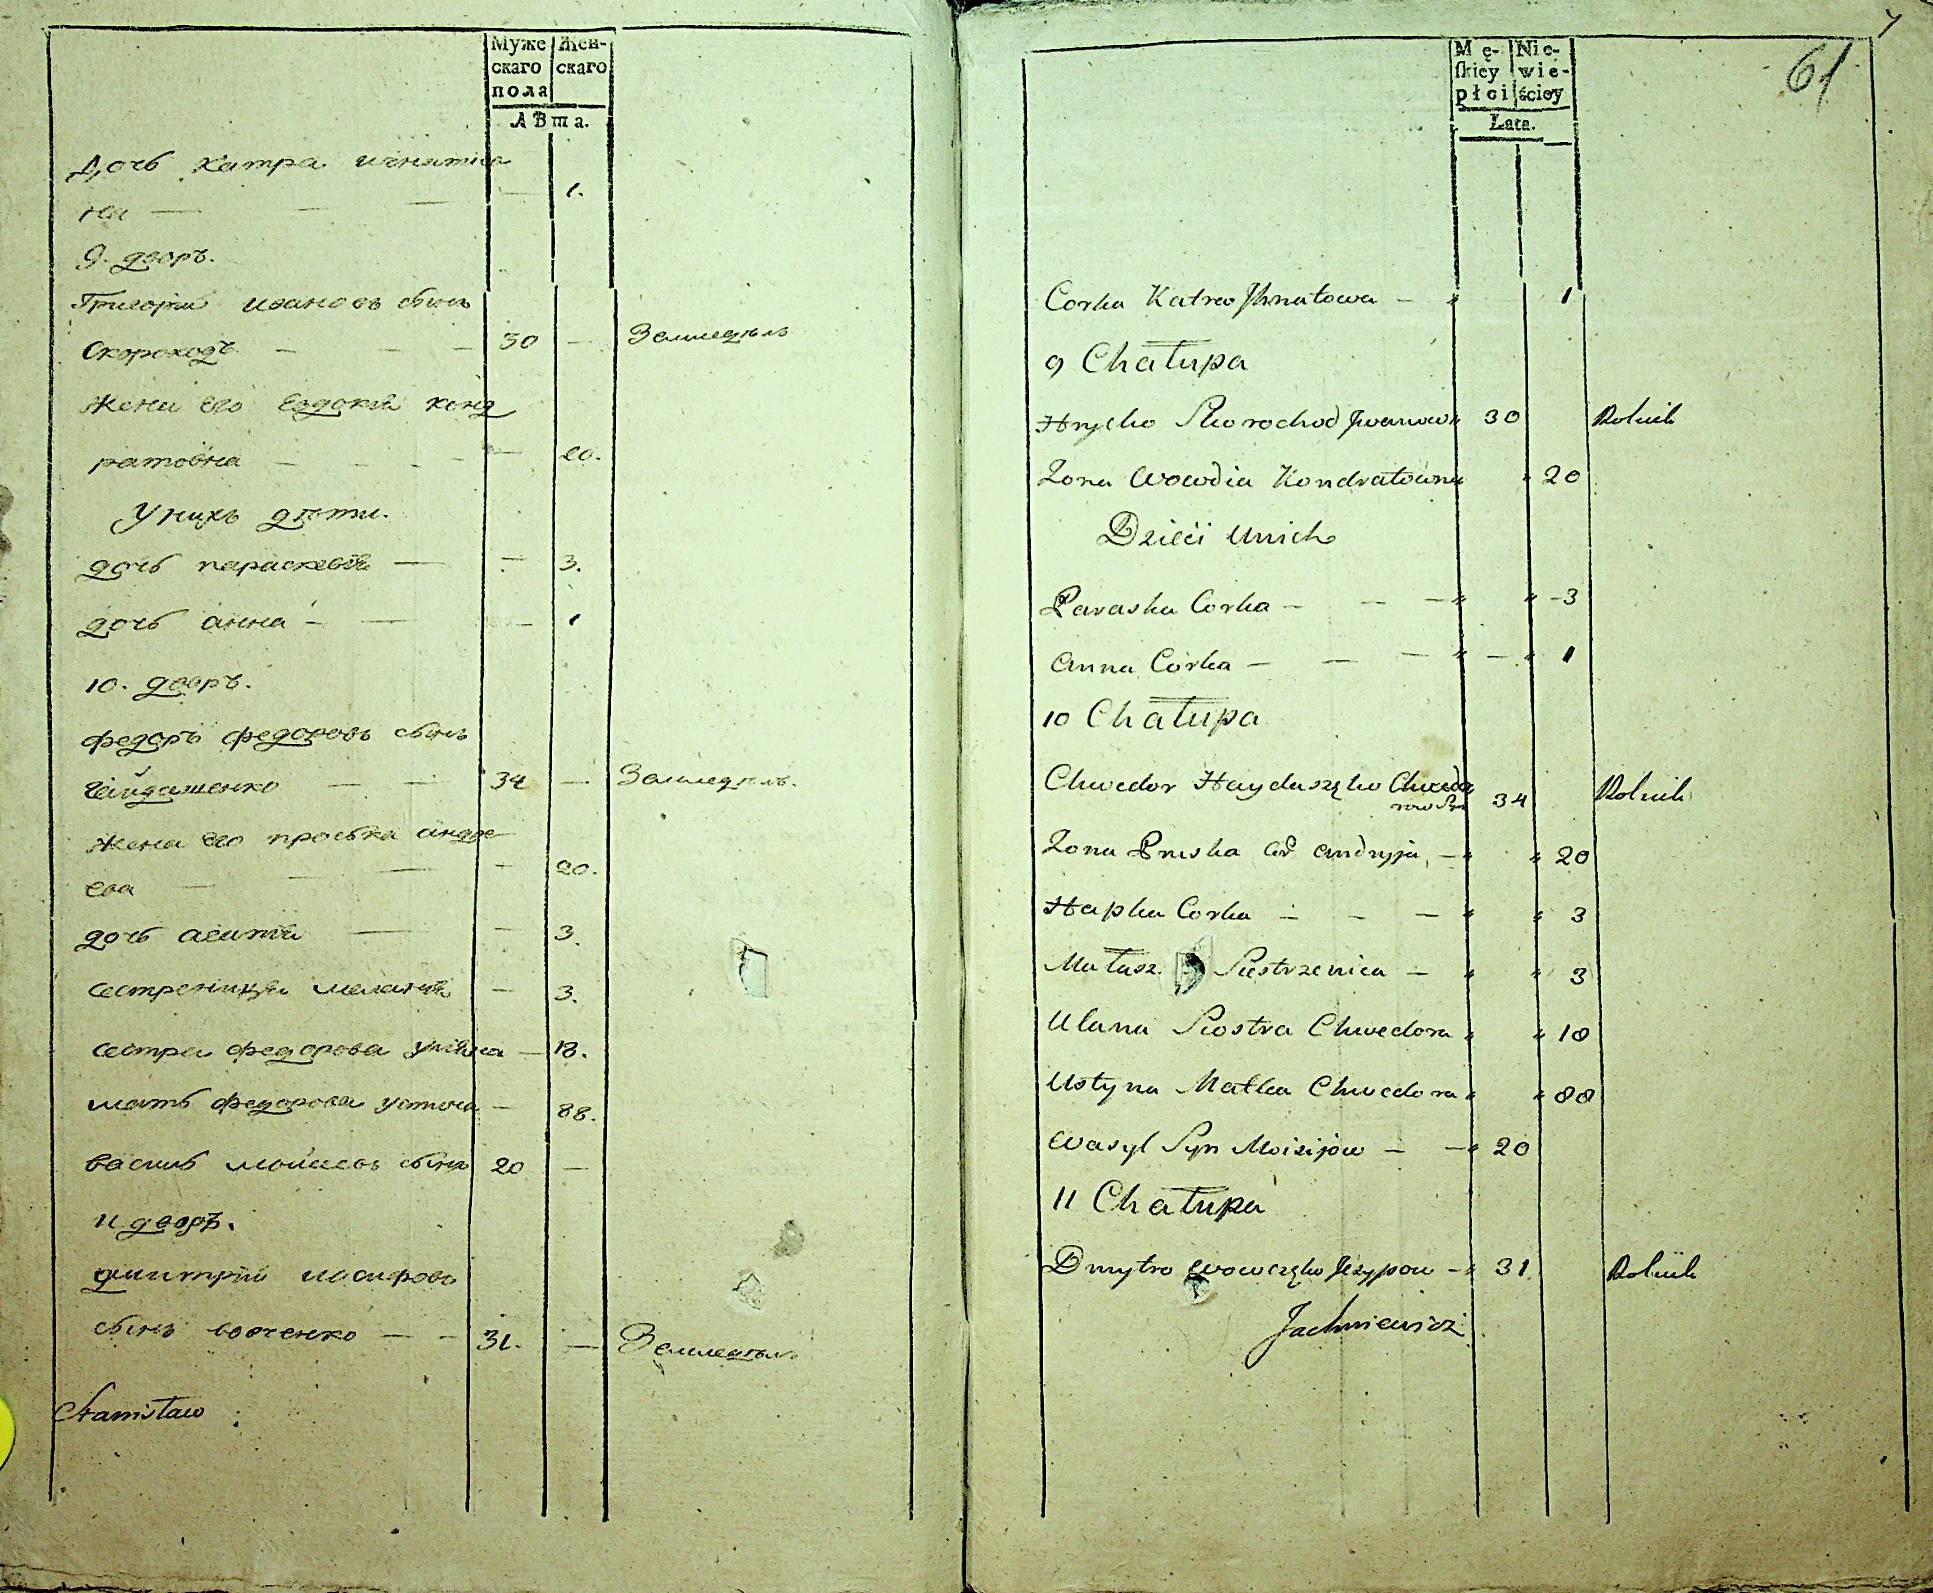 Муже Жен-
скаго скаго
пола
лѣта.
Дочь катра игнатіа
на — — — — — 1.
9. дворъ.
Григорій ивановъ сынъ
Скороходъ — — — 30 — Земледѣлъ
жена его евдокія конд
ратовна — — — — — 20.
У нихъ дѣти.
дочь параскевія — — 3.
дочь анна — — — 1
10. дворъ.
федоръ федоровъ сынъ
гайдашенко — — 34 — Земледѣлъ.
жена его проська андре
ева — — — — 20.
дочь агапія — — 3.
сестреница меланія — 3.
сестра федорова уліяна — 18.
мать федорова устина — 88.
василь моисеовъ сынъ 20 —
11 дворъ.
дмитрій иосифовъ
сынъ вовченко — — 31. — Земледѣлъ.
Stanisław
7
61
Mę- Nie-
skiey wie-
płci ściey
Lata.
Corka Katra Jhnatowa — " 1
9 Chałupa
Hryćko Skorochod Jwanow " 30 Rolnik
Zona Wowdia Kondratowna " 20
Dzieci Unich
Paraska Corka — — — " " — 3
Anna Córka — — — " — " 1
10 Chałupa
Chwedor Haydaszęko Chwedo
row Syn 34 Rolnik
Zona Pruska Cór Andryja, — " " 20
Hapka Corka — — — " " 3
Małasz. Siestrzenica — " " 3
Ulana Siostra Chwedora " " 18
Ustyna Matka Chwedora " " 88
Wasyl Syn Moisijów — — " 20
11 Chałupa
Dmytro Wowczęko Jezypow — " 31. Rolnik
Jachniewicz